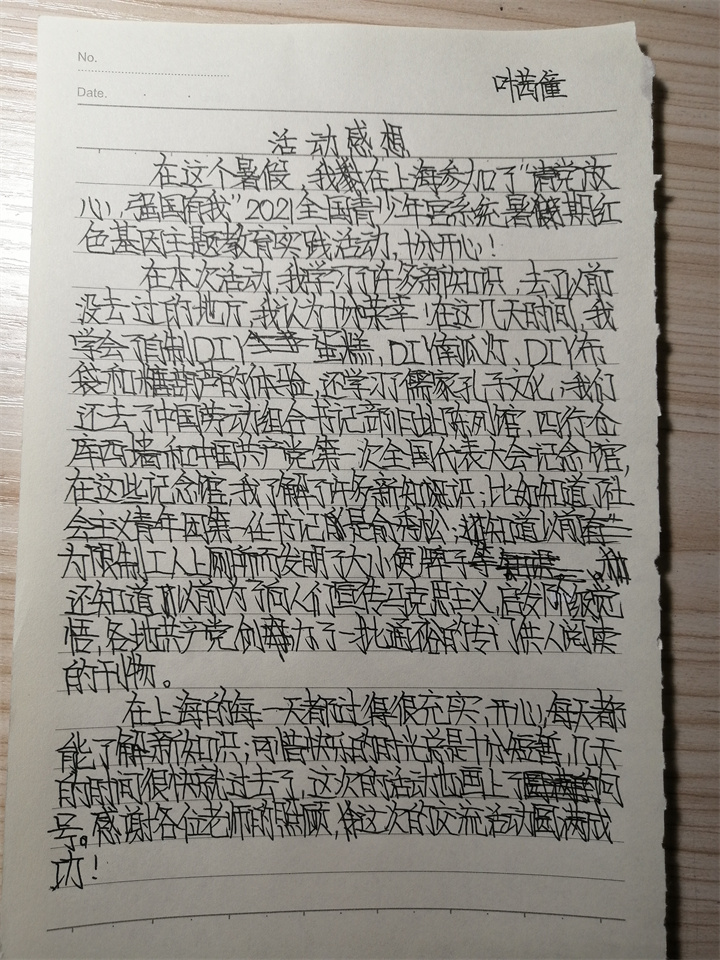 No.
Date.
叶茜僮
活动感想
在这个暑假,我在上海参加了“请党放
心,强国有我”2021全国青少年宫系统暑假期红
色基因主题教育实践活动,十分开心!
在本次活动,我学习了许多新知识,去了以前
没去过的地方,我认为十分荣幸!在这几天时间,我
学会了自制DIY蛋糕、DIY南瓜灯、DIY布
袋和糖葫芦的体验,还学习了儒家孔子文化;我们
还去了中国劳动组合书记部旧址陈列馆,四行仓
库西墙和中国共产党第一次全国代表大会纪念馆,
在这些记念馆,我了解了许多新知识;比如知道了社
会主义青年团第一任书记是俞秀松;知道以前
为限制工人上厕所而发明了大小便牌子等
还知道了以前为了向人们宣传马克思主义,启发阶级觉
悟,各地共产党创办了一批通俗的专门供人阅读
的刊物。
在上海的每一天都过得很充实、开心,每天都
能了解新知识;可惜快乐的时光总是十分短暂,几天
的时间很快就过去了,这次的活动也画上了句
号。感谢各位老师的照顾,令这次的交流活动圆满成
功!